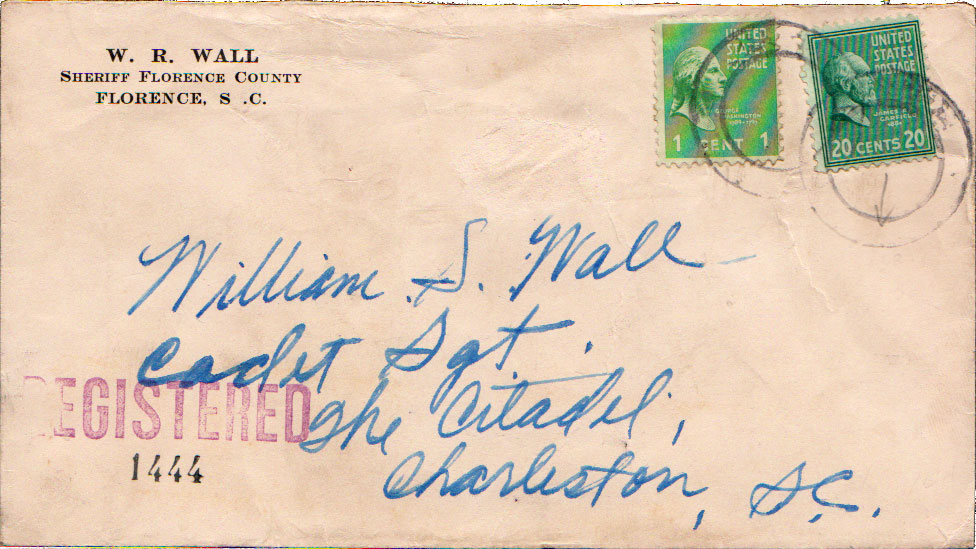 W. R. WALL
SHERIFF FLORENCE COUNTY
FLORENCE, S .C.
UNITED
STATES
POSTAGE
GEORGE
WASHINGTON
1789-1797
1 CENT 1
UNITED
STATES
POSTAGE
JAMES A.
GARFIELD
1881
20 CENTS 20
William S. Wall
Cadet Sgt.
The Citadel,
Charleston, S.C.
REGISTERED
1444